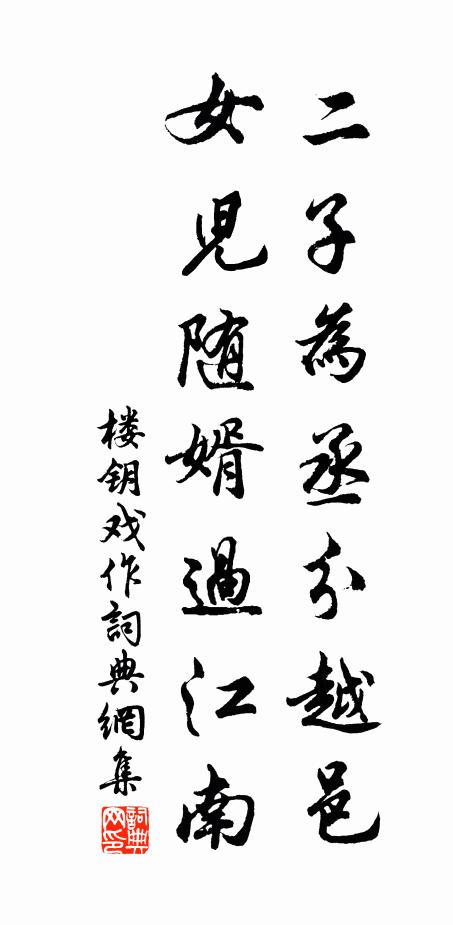 二子為丞分越邑
女兒随婿過江南
楼钥戏作詞典網集
詞典网印